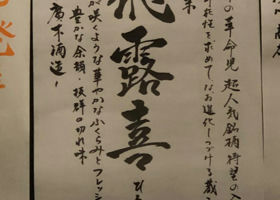 の革命児 超人気銘柄待望の入
可能性を求めて、なお進化しつづける蔵
飛露喜
が咲くような華やかなふくらみとフレッシ
豊かな余韻、抜群の切れ味
廣木酒造